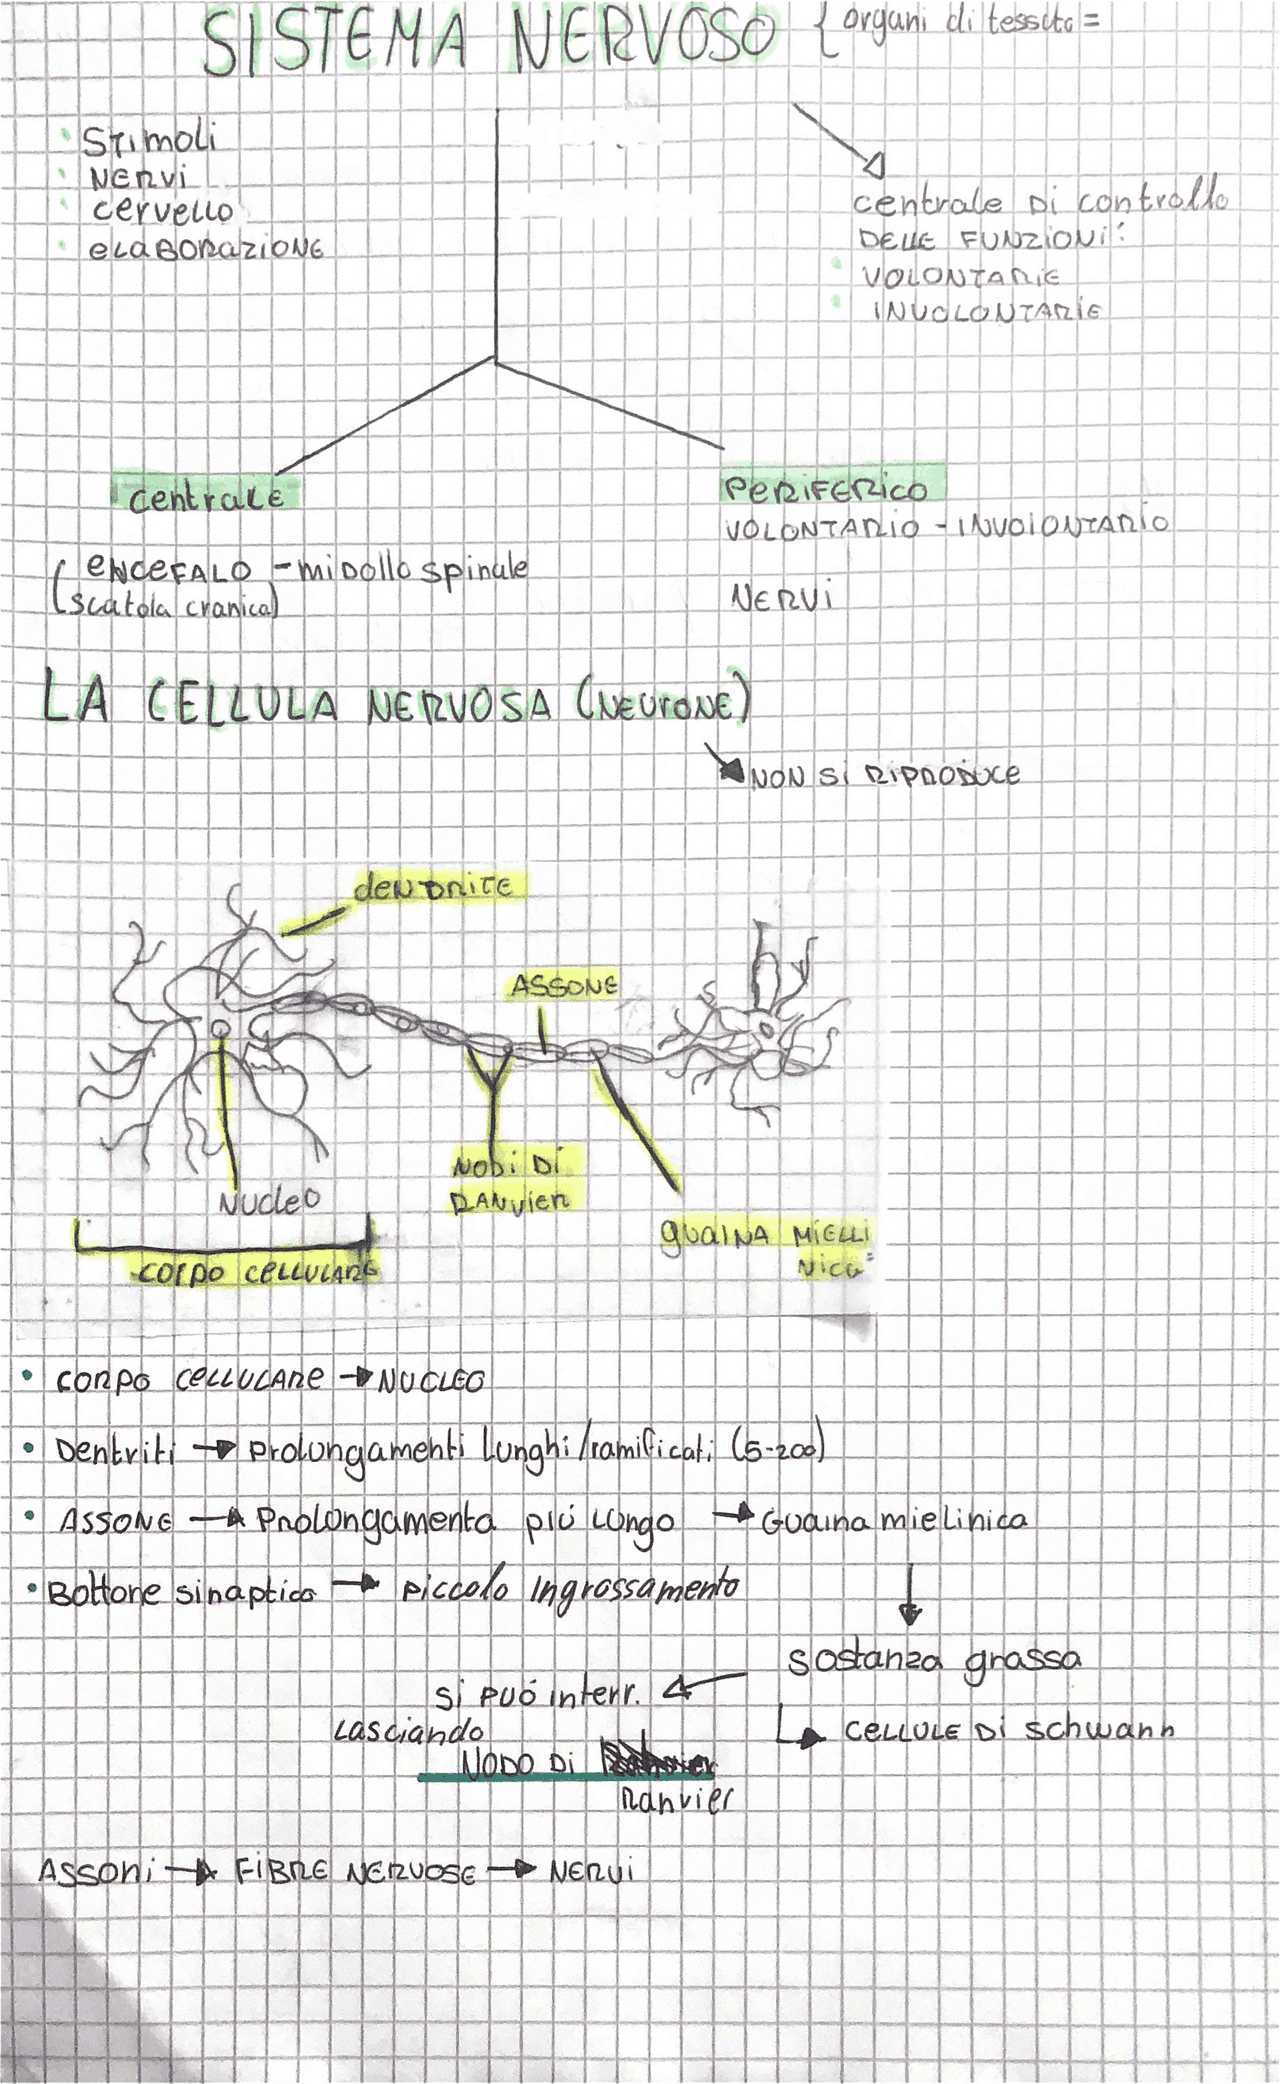 SISTEMA NERVOSO { organi di tessuto =
• Stimoli
• NERVI
• cervello
• elaborazione
centrale di controllo
DELLE FUNZIONI:
• VOLONTARIE
• INVOLONTARIE
centrale
PERIFERICO
VOLONTARIO - INVOLONTARIO
ENCEFALO - midollo spinale
(scatola cranica)
NERVI
LA CELLULA NERVOSA (NEURONE)
NON SI RIPRODUCE
dendrite
ASSONE
NODI DI
RANVIER
NUCLEO
GUAINA MIELLI
NICA
CORPO CELLULARE
• CORPO CELLULARE → NUCLEO
• Dentriti → Prolungamenti lunghi/ramificati (5-200)
• ASSONE → Prolungamento più lungo → Guaina mielinica
• Bottone sinaptico → piccolo ingrossamento
sostanza grassa
si può interr.
lasciando
CELLULE DI schwann
NODO DI
Ranvier
ASSONI → FIBRE NERVOSE → NERVI